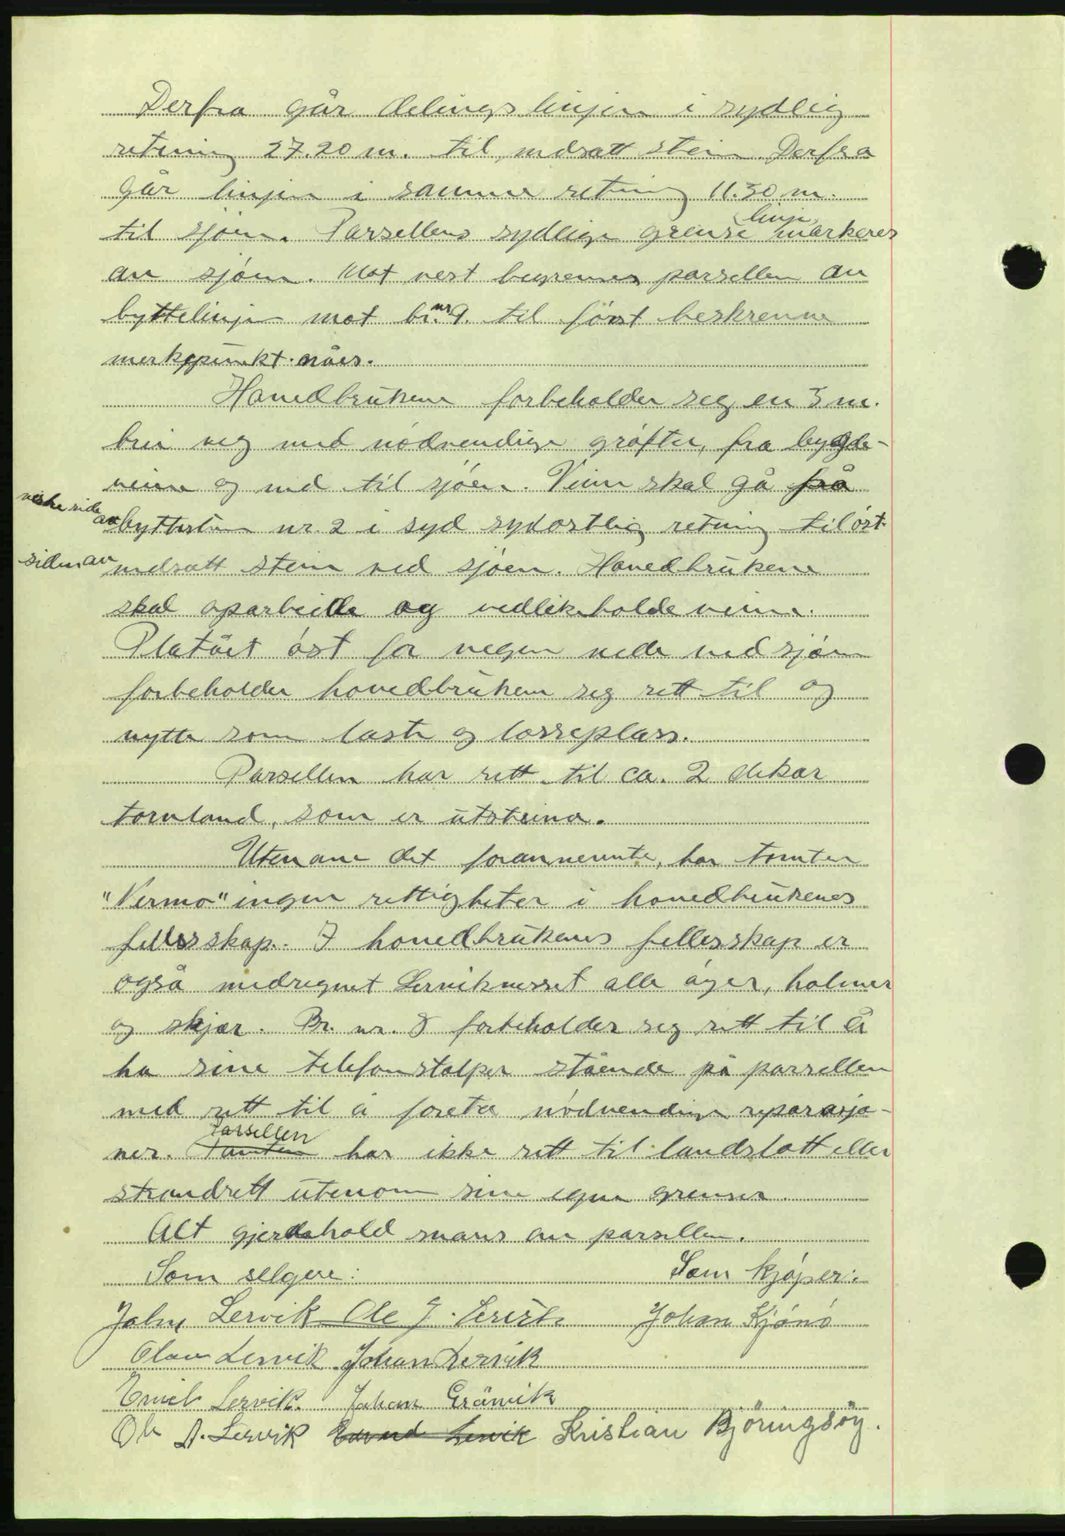 Derfra går delingslinjen i sydlig
retning 27.20 m. til nedsatt stein. Derfra
går linjen i samme retning 11.30 m.
til sjøen. Parsellens sydlige grense linje markeres
av sjøen. Mot vest begrenses parsellen av
byttelinje mot br. nr. 9. til først beskrevne
merkepunkt nåes.
Hovedbrukene forbeholder seg en 3 m.
brei veg med nødvendige grøfter, fra bygde-
veien og ned til sjøen. Veien skal gå fra
vestre side av byttestein nr. 2 i syd sydostlig retning til øst-
siden av nedsatt stein ved sjøen. Hovedbrukene
skal oparbeide og vedlikeholde veien.
Platået øst for vegen nede ved sjøen
forbeholder hovedbruken seg rett til og
nytte som laste og losseplass.
Parsellen har rett til ca. 2 dekar
torvland, som er utsteina.
Utenom det forannevnte, har tomten
"Vermo" ingen rettigheter i hovedbrukenes
fellesskap. I hovedbrukenes fellesskap er
også medregnet Lerviknesset alle øyer, holmer
og skjær. Br. nr. 8 forbeholder seg rett til å
ha sine telefonstolper stående på parsellen
med rett til å foreta nødvendige reparasjo-
ner. Tomten Parsellen har ikke rett til landslott eller
strandrett utenom sine egne grenser.
Alt gjerdehold svares av parsellen.
Som selgere: Som kjøper:
John Lervik Ole J. Lervik Johan Kjønø
Olav Lervik Johan Lervik
Emil Lervik. Johan Grønvik
Ole A. Lervik Edvard Lervik Kristian Bjøringsøy.